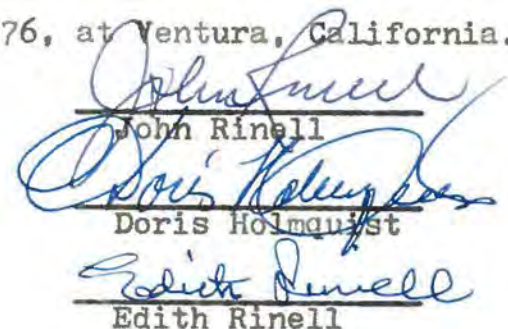 76, at Ventura, California.
John Rinell
John Rinell
Doris Holmquist
Doris Holmquist
Edith Rinell
Edith Rinell